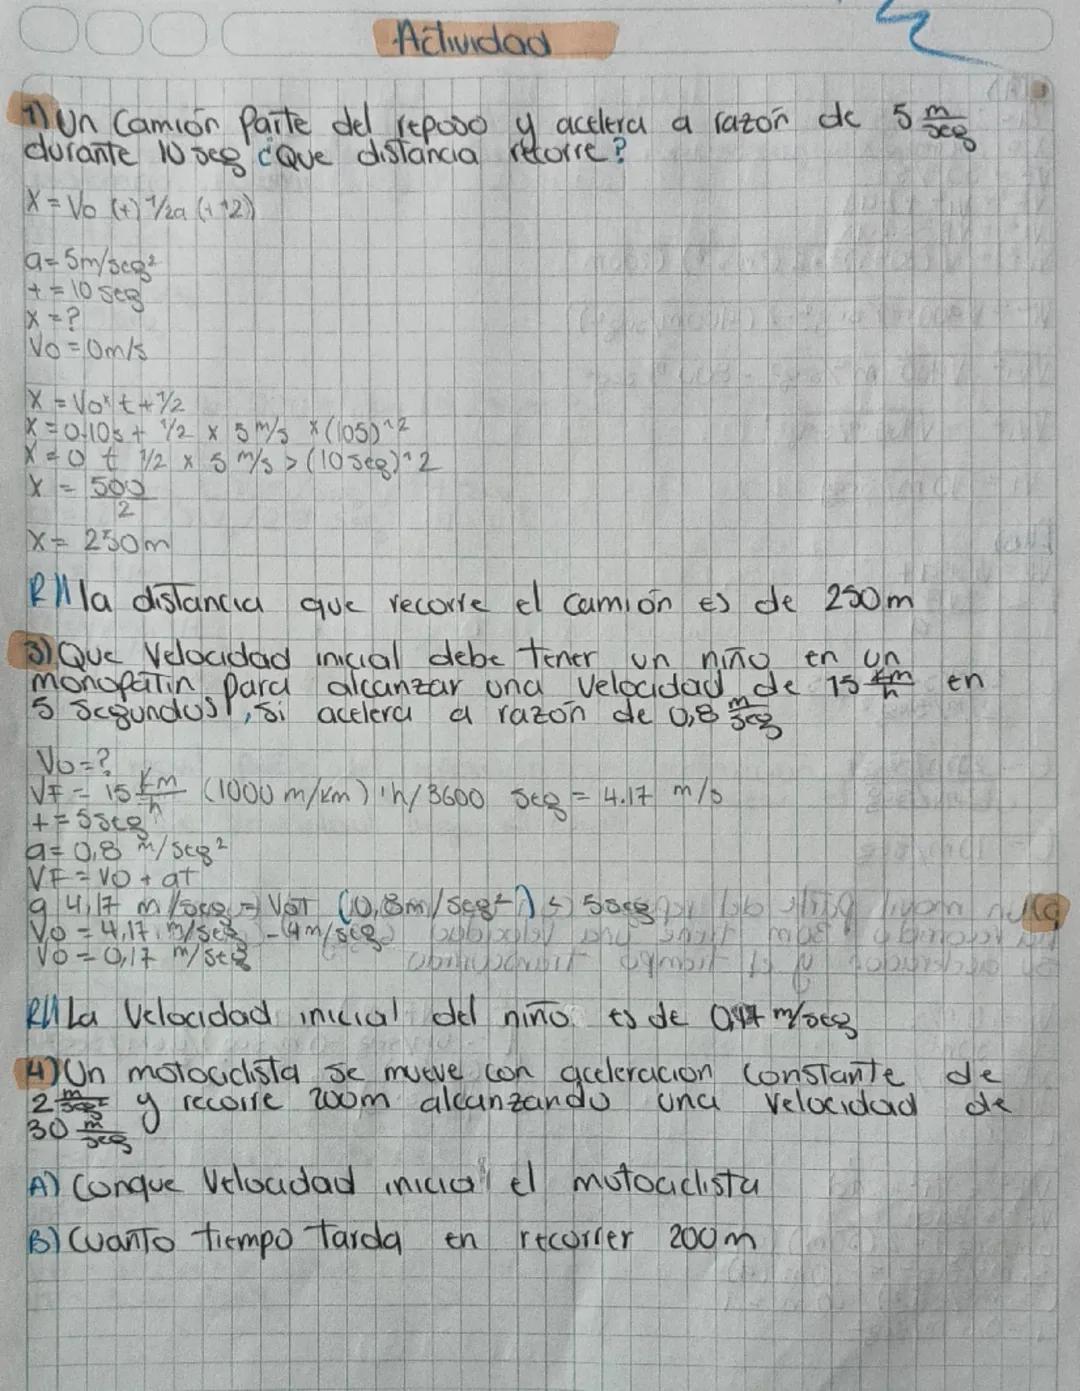 Actividad
1) Un Camión Parte del reposo y acelera a razón de 5 m/seg
durante 10 seg ¿Que distancia recorre?
X = Vo (t) 1/2a (t^2)
a= 5m/seg²
t = 10 seg
X = ?
Vo = 0m/s
X = Vo x t + 1/2
X = 0.10s + 1/2 x 5 m/s x (10s)^2
X = 0 t 1/2 x 5 m/s > (10 seg)^2
X = 500/2
X = 250m
R// la distancia que recorre el camión es de 250m
3) Que Velocidad inicial debe tener un niño en un
monopatin para alcanzar una Velocidad de 15 km/h en
5 segundos, si acelera a razón de 0,8 m/seg
Vo = ?
VF = 15 km/h (1000 m/km) 1h/3600 seg = 4.17 m/s
t = 5seg
a = 0,8 m/seg²
VF = VO + at
9 4,17 m/seg = VoT (0,8m/seg²) 5seg
Vo = 4,17 m/seg - (4m/seg
Vo = 0,17 m/seg
R// La Velocidad inicial del niño es de 0,17 m/seg
4) Un motociclista se mueve con aceleracion constante de
2 m/seg² y recorre 200m alcanzando una velocidad de
30 m/seg
A) Conque Velocidad inicial el motociclista
B) Cuanto tiempo tarda en recorrer 200m